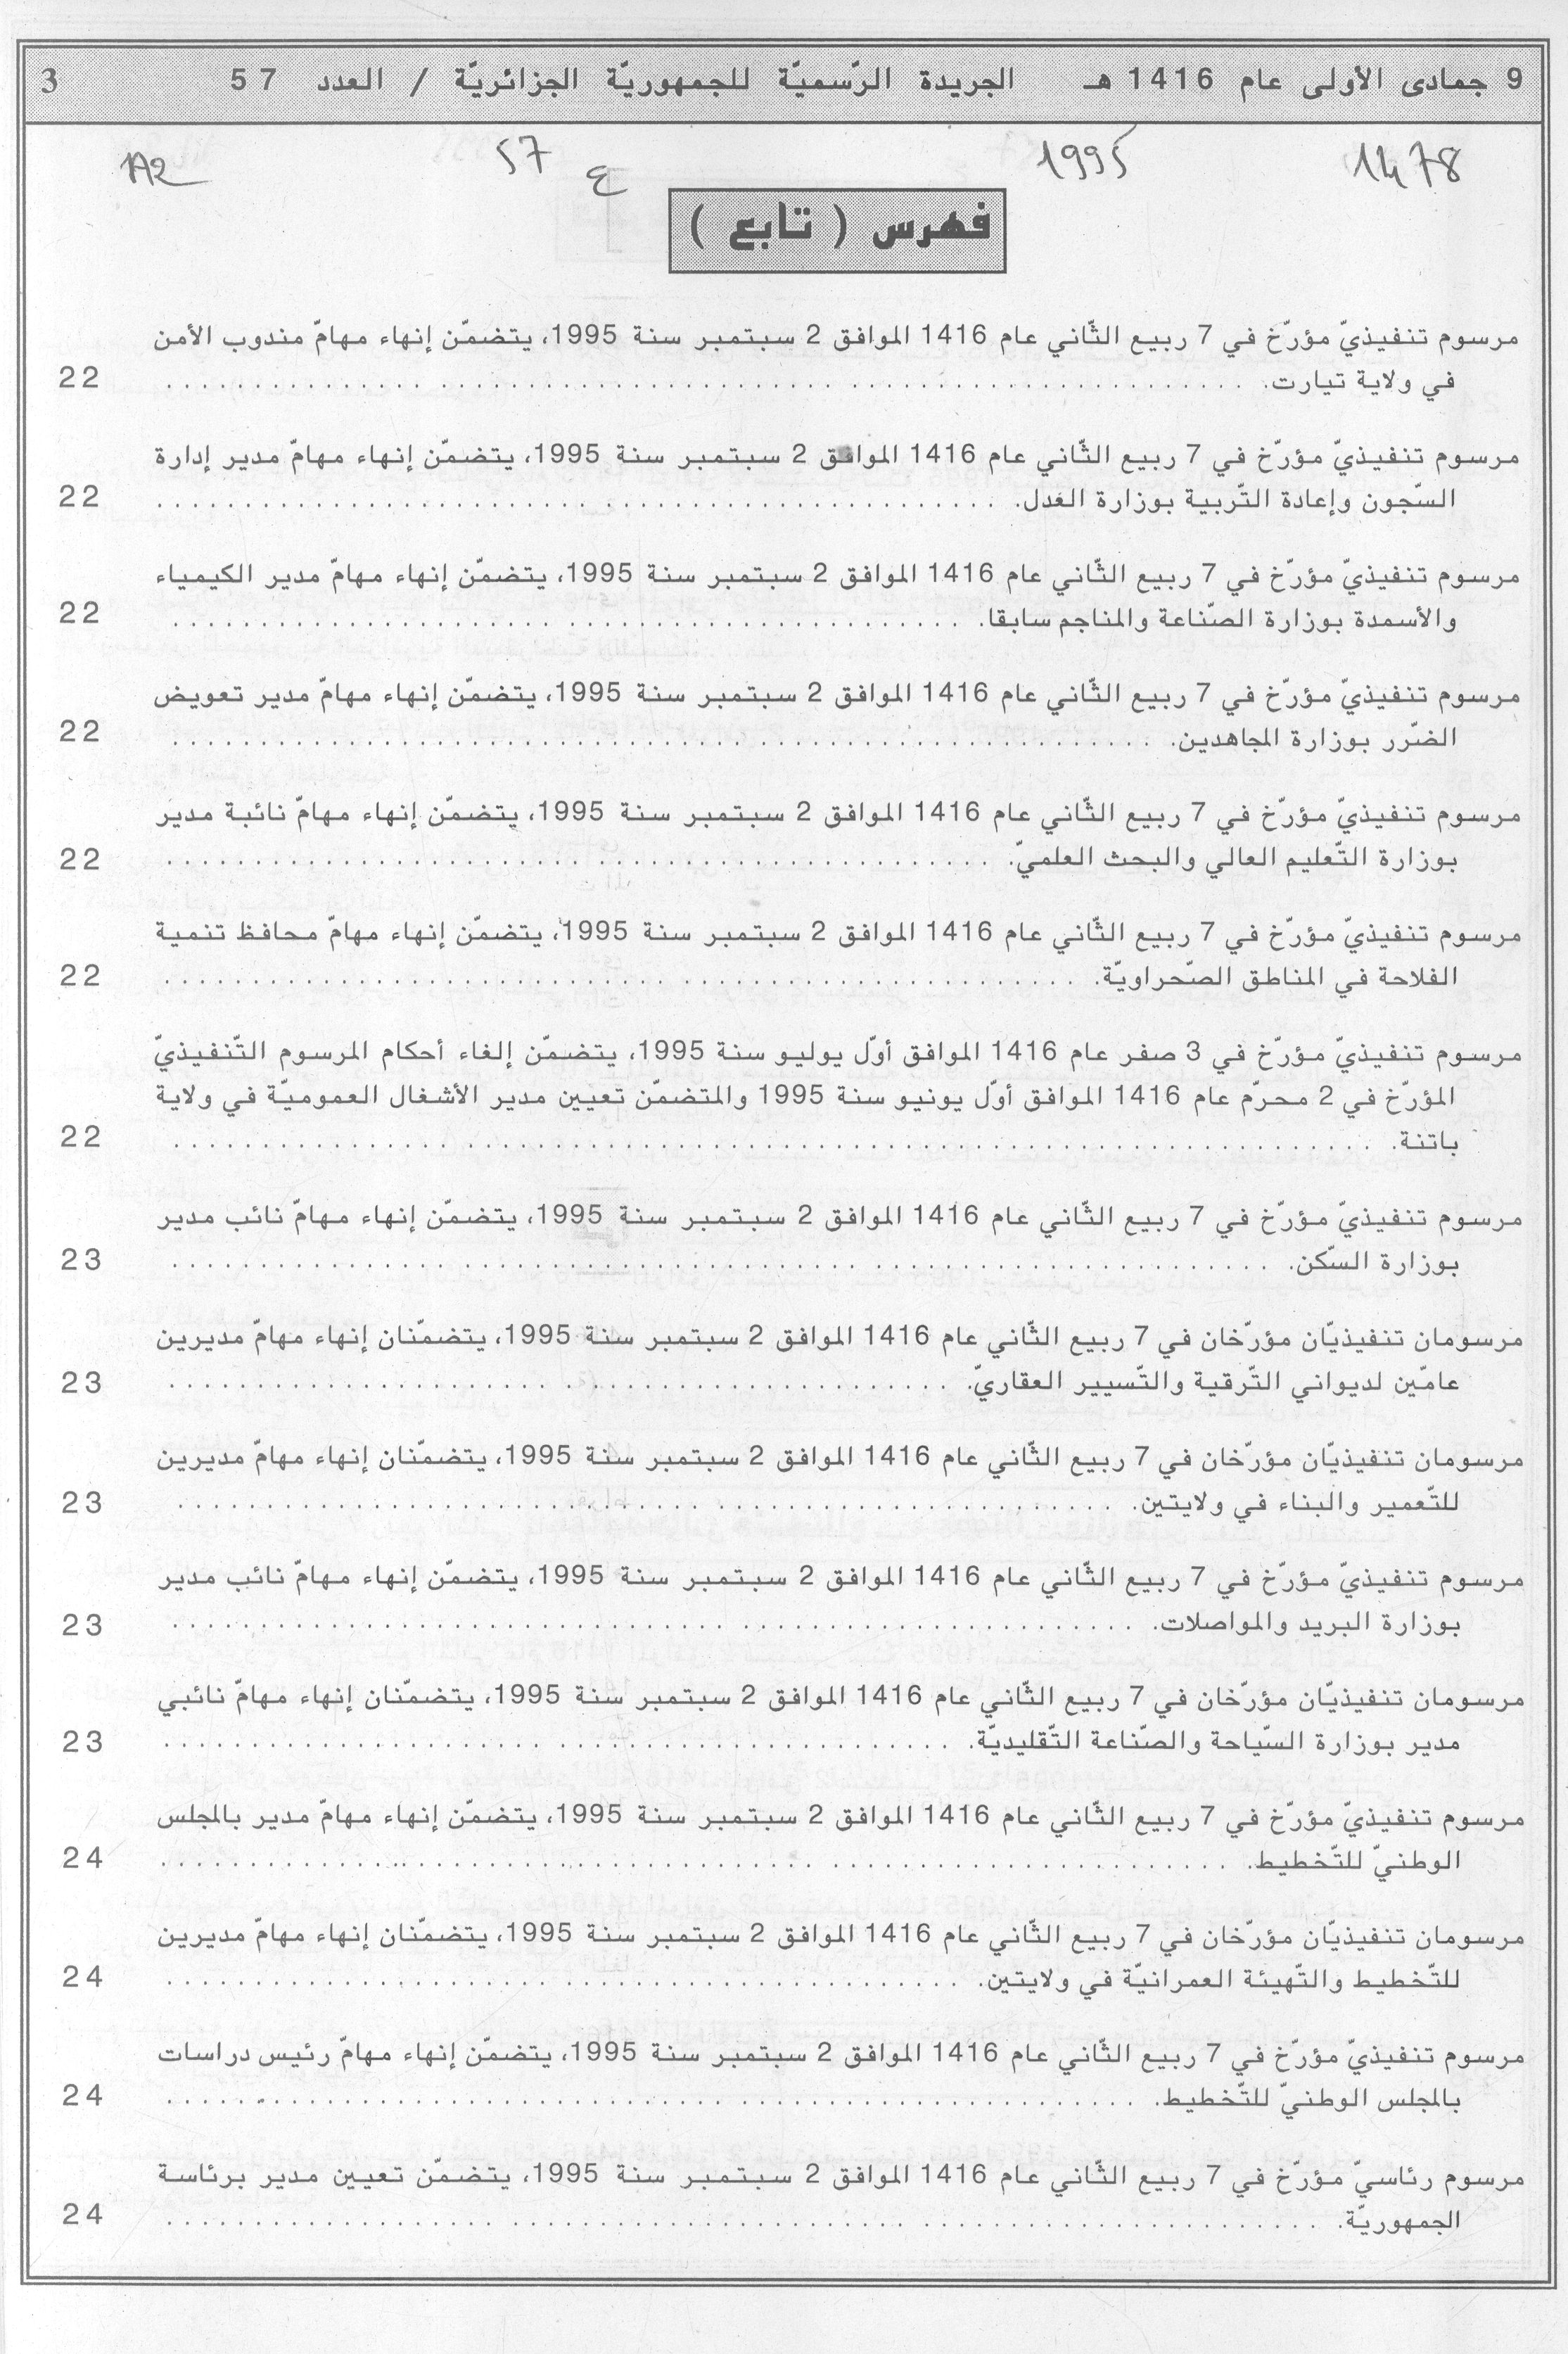 9 جمادى الأولى عام 1416 هـ الجريدة الرّسميّة للجمهوريّة الجزائريّة / العدد 57 3
1478 1995 ع 57 1A2
فهرس ( تابع )
مرسوم تنفيذيّ مؤرّخ في 7 ربيع الثّاني عام 1416 الموافق 2 سبتمبر سنة 1995، يتضمّن إنهاء مهامّ مندوب الأمن
في ولاية تيارت. 22
مرسوم تنفيذيّ مؤرّخ في 7 ربيع الثّاني عام 1416 الموافق 2 سبتمبر سنة 1995، يتضمّن إنهاء مهامّ مدير إدارة
السّجون وإعادة التّربية بوزارة العدل. 22
مرسوم تنفيذيّ مؤرّخ في 7 ربيع الثّاني عام 1416 الموافق 2 سبتمبر سنة 1995، يتضمّن إنهاء مهامّ مدير الكيمياء
والأسمدة بوزارة الصّناعة والمناجم سابقا. 22
مرسوم تنفيذيّ مؤرّخ في 7 ربيع الثّاني عام 1416 الموافق 2 سبتمبر سنة 1995، يتضمّن إنهاء مهامّ مدير تعويض
الضّرر بوزارة المجاهدين. 22
مرسوم تنفيذيّ مؤرّخ في 7 ربيع الثّاني عام 1416 الموافق 2 سبتمبر سنة 1995، يتضمّن إنهاء مهامّ نائبة مدير
بوزارة التّعليم العالي والبحث العلميّ. 22
مرسوم تنفيذيّ مؤرّخ في 7 ربيع الثّاني عام 1416 الموافق 2 سبتمبر سنة 1995، يتضمّن إنهاء مهامّ محافظ تنمية
الفلاحة في المناطق الصّحراويّة. 22
مرسوم تنفيذيّ مؤرّخ في 3 صفر عام 1416 الموافق أوّل يوليو سنة 1995، يتضمّن إلغاء أحكام المرسوم التّنفيذيّ
المؤرّخ في 2 محرّم عام 1416 الموافق أوّل يونيو سنة 1995 والمتضمّن تعيين مدير الأشغال العموميّة في ولاية
باتنة. 22
مرسوم تنفيذيّ مؤرّخ في 7 ربيع الثّاني عام 1416 الموافق 2 سبتمبر سنة 1995، يتضمّن إنهاء مهامّ نائب مدير
بوزارة السّكن. 23
مرسومان تنفيذيّان مؤرّخان في 7 ربيع الثّاني عام 1416 الموافق 2 سبتمبر سنة 1995، يتضمّنان إنهاء مهامّ مديرين
عامّين لديواني التّرقية والتّسيير العقاريّ. 23
مرسومان تنفيذيّان مؤرّخان في 7 ربيع الثّاني عام 1416 الموافق 2 سبتمبر سنة 1995، يتضمّنان إنهاء مهامّ مديرين
للتّعمير والبناء في ولايتين. 23
مرسوم تنفيذيّ مؤرّخ في 7 ربيع الثّاني عام 1416 الموافق 2 سبتمبر سنة 1995، يتضمّن إنهاء مهامّ نائب مدير
بوزارة البريد والمواصلات. 23
مرسومان تنفيذيّان مؤرّخان في 7 ربيع الثّاني عام 1416 الموافق 2 سبتمبر سنة 1995، يتضمّنان إنهاء مهامّ نائبي
مدير بوزارة السّياحة والصّناعة التّقليديّة. 23
مرسوم تنفيذيّ مؤرّخ في 7 ربيع الثّاني عام 1416 الموافق 2 سبتمبر سنة 1995، يتضمّن إنهاء مهامّ مدير بالمجلس
الوطنيّ للتّخطيط. 24
مرسومان تنفيذيّان مؤرّخان في 7 ربيع الثّاني عام 1416 الموافق 2 سبتمبر سنة 1995، يتضمّنان إنهاء مهامّ مديرين
للتّخطيط والتّهيئة العمرانيّة في ولايتين. 24
مرسوم تنفيذيّ مؤرّخ في 7 ربيع الثّاني عام 1416 الموافق 2 سبتمبر سنة 1995، يتضمّن إنهاء مهامّ رئيس دراسات
بالمجلس الوطنيّ للتّخطيط. 24
مرسوم رئاسيّ مؤرّخ في 7 ربيع الثّاني عام 1416 الموافق 2 سبتمبر سنة 1995، يتضمّن تعيين مدير برئاسة
الجمهوريّة. 24